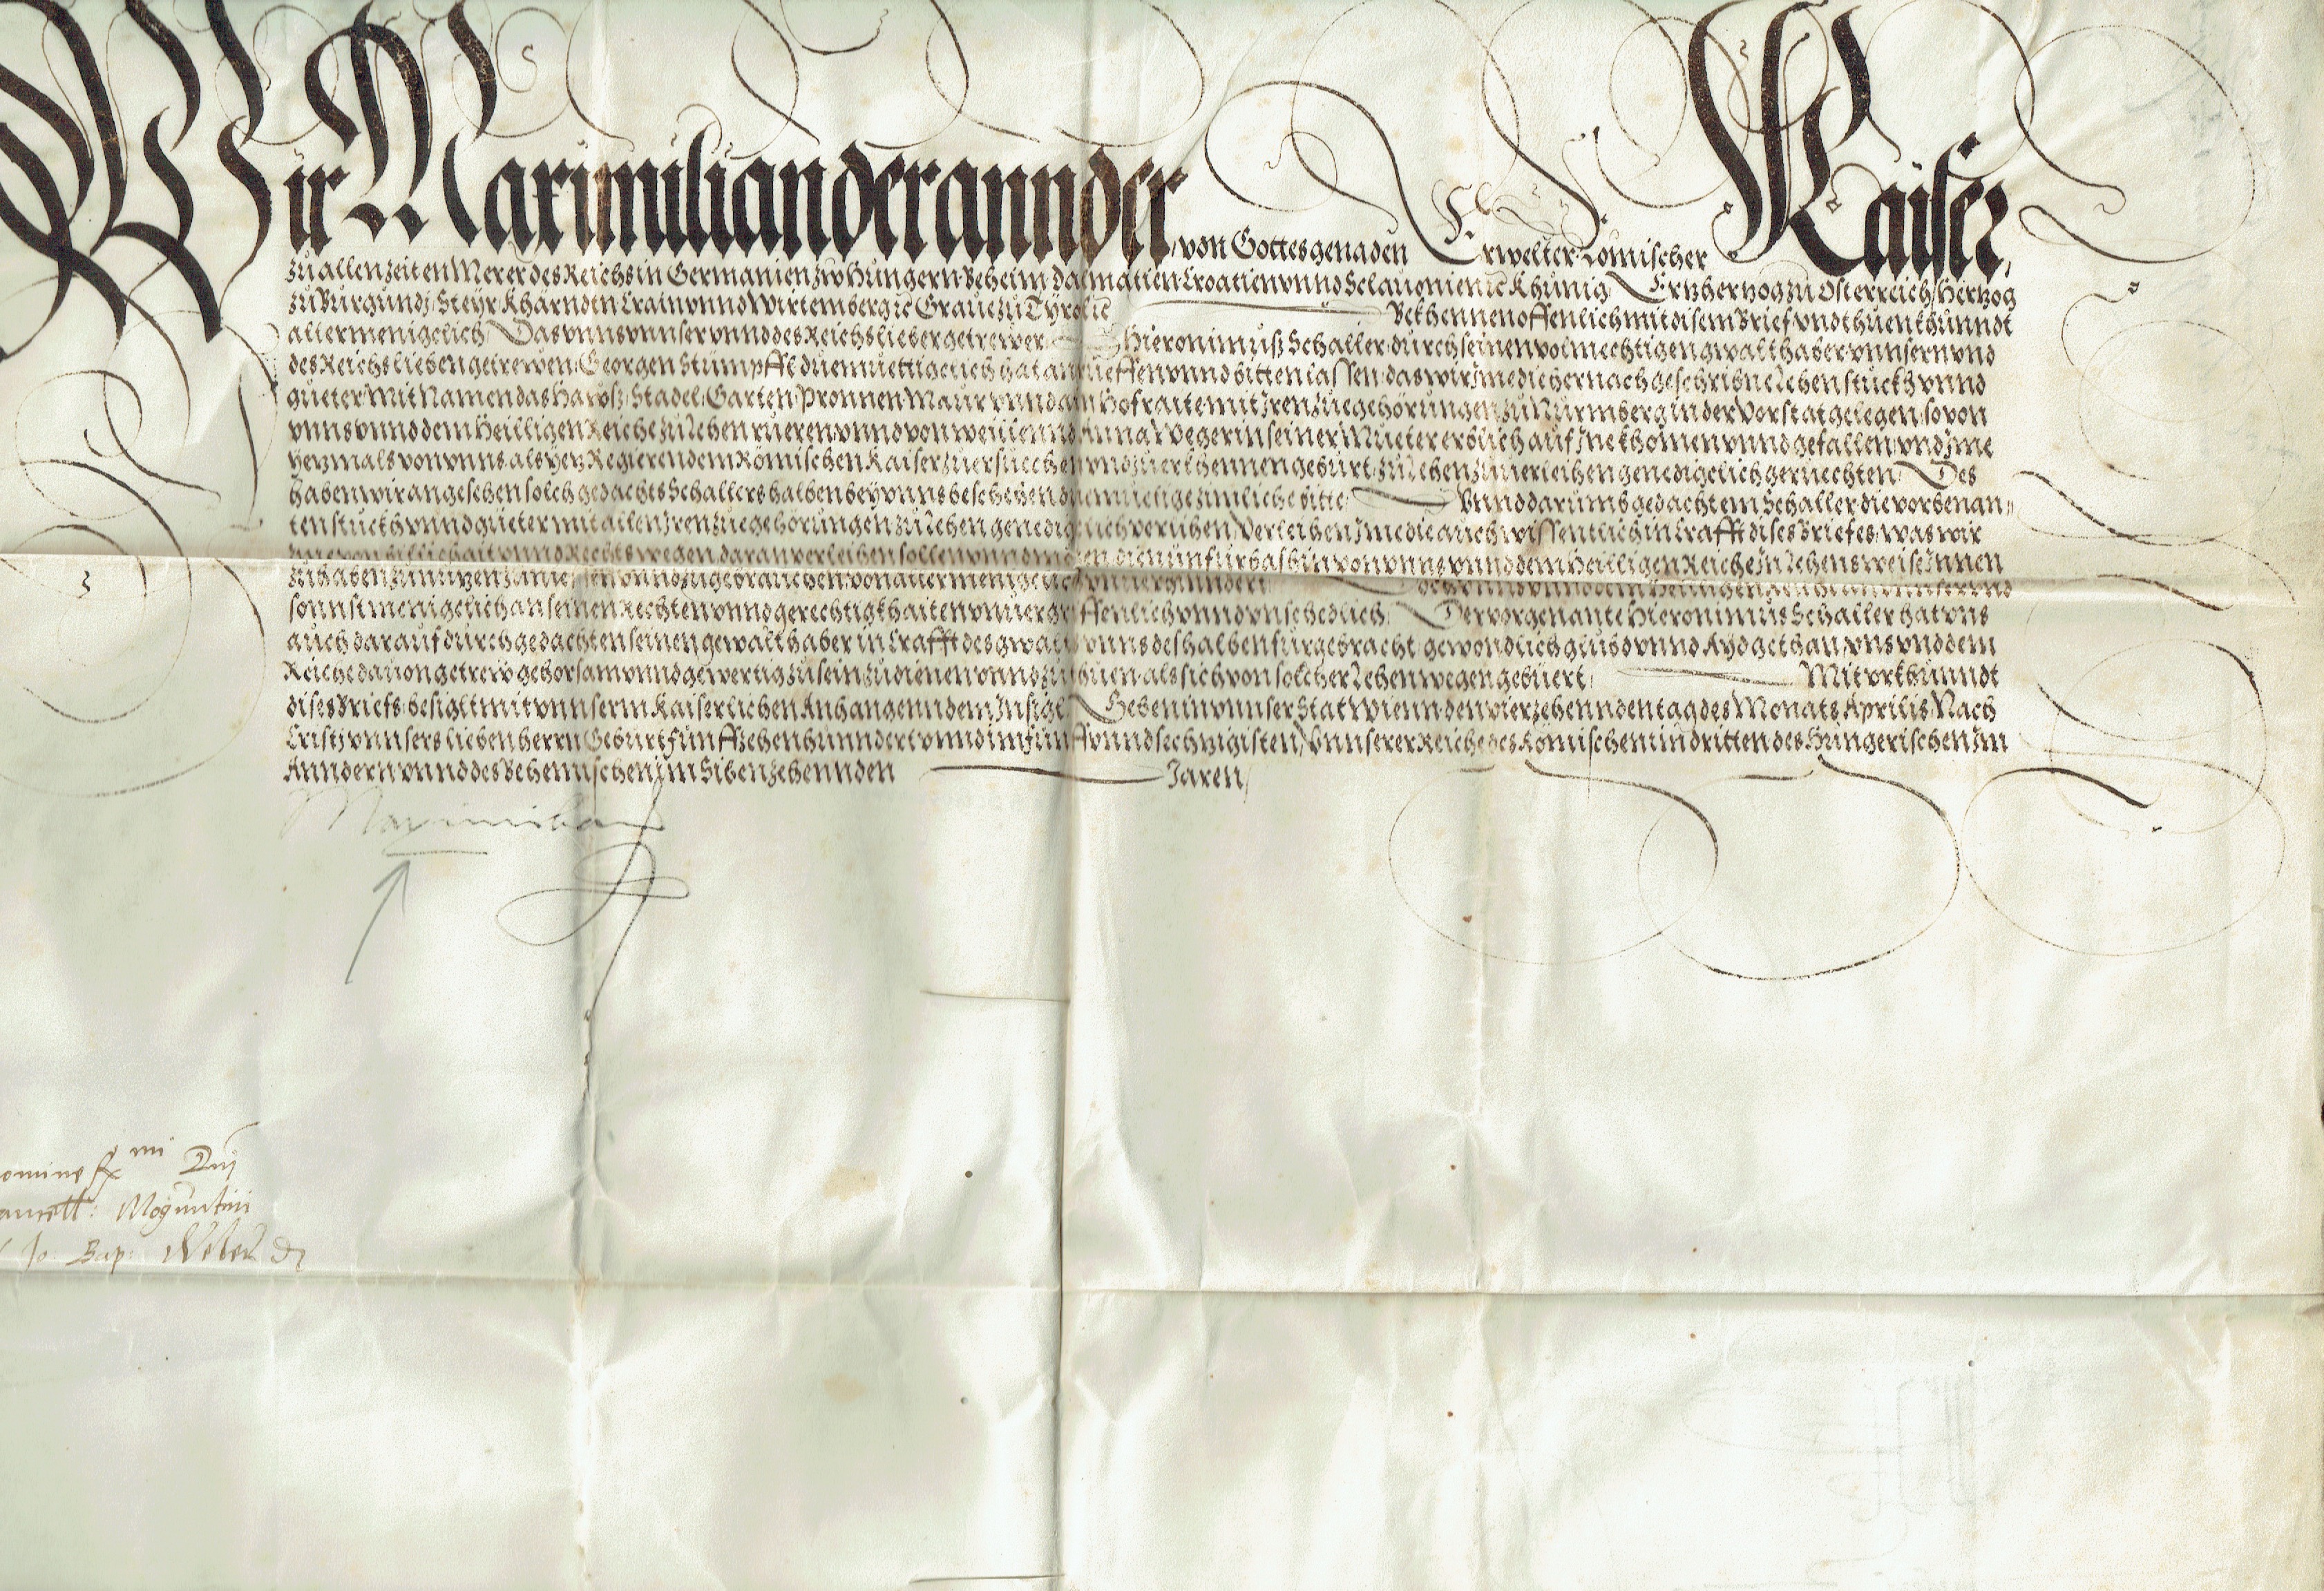 Wir Maximilian der annder von Gottes genaden Erwelter Romischer Kaiser,
zu allen zeiten Merer des Reichs in Germanien zw Hungern Beheim Dalmatien Croatien vnnd Sclauonien ꝛc Khunig, Ertzhertzog zu Osterreich, Hertzog
zu Burgundj Steyr Kharndtn Crain vnnd Wirtemberg ꝛc Graue zu Tyrol ꝛc Bekhennen offenlich mit disem Brief vnd thuen khunndt
allermenigelich, Das vnns vnnser vnnd des Reichs lieber getrewer Hieronimuß Schaller durch seinen volmechtigen gwalthaber vnnsern vnd
des Reichs lieben getrewen Georgen Stumpffl diemuettigclich hat anrueffen vnnd bitten lassen, das wir Ime die hernach geschribne Lehenstuckh vnnd
gueter Mit Namen das Hauß, Stadel, Garten, Pronnen Maur vnnd ain Hofraite mit Iren zuegehörungen zu Nurmberg in der Vorstat gelegen, so von
vnns vnnd dem Heilligen Reiche zu Lehen rueren vnnd von weillennd Anna Wegerin seiner Mueter erblich auf Ine khomen vnnd gefallen, vnd Ime
yetzmals von vnns als yetz Regierendem Römischen Kaiser zuersuechen vnd zuerkhennen geburt, zu Lehen zuuerleihen genedigelich geruechten, Des
haben wir angesehen solch gedachts Schallers halben bey vnns beschehen diemuetige zimliche bitte Vnnd darumb gedachtem Schaller die vorbenan=
ten stuckh vnnd gueter mit allen Iren zuegehörungen zu Lehen genedigclich verlihen, Verleihen Ime die auch wissentlich in Crafft dises Briefes, was wir
Ime von billichait vnnd Rechts wegen daran verleihen sollen vnnd mugen, die nun furbashin von vnns vnnd dem Heilligen Reiche In Lehensweise Innen
zuhaben zunutzen zuniessen vnnd zugebrauchen von allermenigclich vnuerhindert Doch vnns vnnd dem Heilligen Reiche an vnnser vnd
sonnst menigclich an seinen Rechten vnnd gerechtigkhaiten vnuergriffenlich vnnd vnschedlich, Der vorgenante Hieronimus Schaller hat vns
auch darauf durch gedachten seinen gewalthaber in Crafft des gwalts vnns deshalben furgebracht, gewondlich glubd vnnd Ayd gethan, vns vnd dem
Reiche dauon getrew gehorsam vnnd gewertig zu sein zu dienen vnnd zuthuen, als sich von solcher Lehen wegen gebuert, Mit vrkhunndt
dises Briefs besiglt mit vnnserm Kaiserlichen Anhangenndem Insigl, Geben in vnnser Stat Wienn den vierzehennden tag des Monats Aprilis Nach
Cristj vnnsers lieben herrn Geburt funffzehenhunndert vnnd im funffvnndsechtzigisten, Vnnserer Reiche des Römischen im dritten des Hungerischen Im
Anndern vnnd des Behemischen im Sibenzehennden Jaren,
Maximilian
Dnj
Moguntini
Jo Bap: Weber D